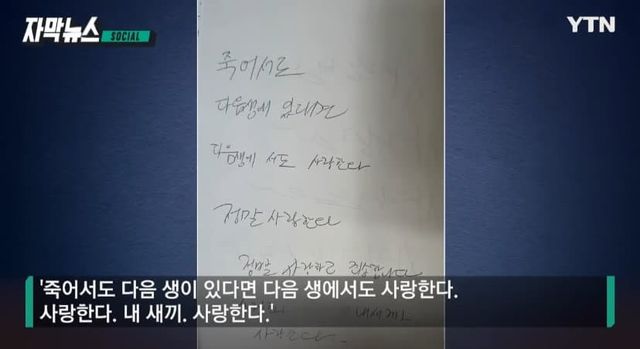 자막뉴스
SOCIAL
YTN
죽어서도
다음생에 있다면
다음생에서도 사랑한다
정말 사랑한다
정말 사랑하고 죄송합니다
내새끼
사랑한다.
'죽어서도 다음 생이 있다면 다음 생에서도 사랑한다.
사랑한다. 내 새끼. 사랑한다.'